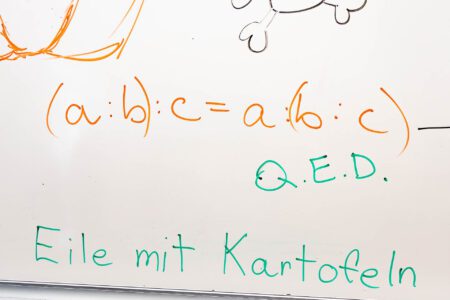 (a:b):c=a:(b:c)
Q.E.D.
Eile mit Kartofeln